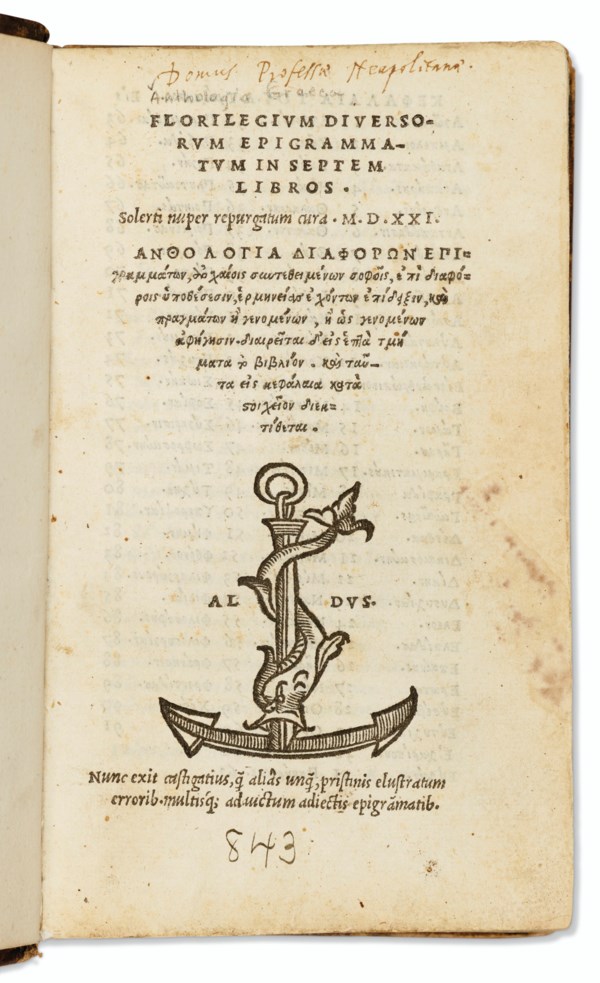 Domus Professæ Neapolitanæ.
Anthologia Graeca
FLORILEGIVM DIVERSO-
RVM EPIGRAMMA-
TVM IN SEPTEM
LIBROS.
Solerti nuper repurgatum cura. M. D. XXI.
ΑΝΘΟΛΟΓΙΑ ΔΙΑΦΟΡΩΝ ΕΠΙ-
γραμμάτων, ἀρχαίοις συντεθειμένων σοφοῖς, ἐπὶ διαφό-
ροις ὑποθέσεσιν, ἑρμηνείας ἐχόντων ἐπίδειξιν, καὶ
πραγμάτων ἢ γενομένων, ἢ ὡς γενομένων
ἀφήγησιν. διαιρεῖται δ' εἰς ἑπτὰ τμή
ματα τὸ βιβλίον. καὶ ταῦ-
τα εἰς κεφάλαια κατὰ
στοιχεῖον διεκ-
τίθεται.
AL DVS.
Nunc exit castigatius, q̃ aliàs unq̃, pristinis elustratum
errorib. multisq; ad uictum adiectis epigrãmatib.
843